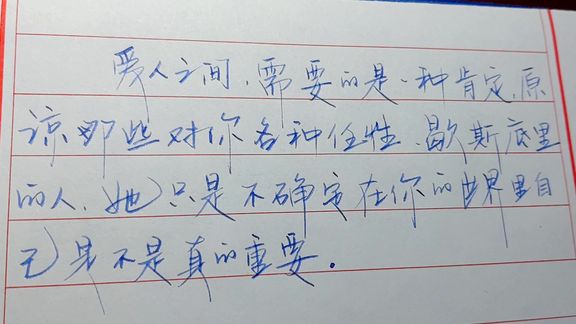 爱人之间,需要的是一种肯定,原
谅那些对你各种任性、歇斯底里
的人,她只是不确定在你的世界里自
己是不是真的重要。